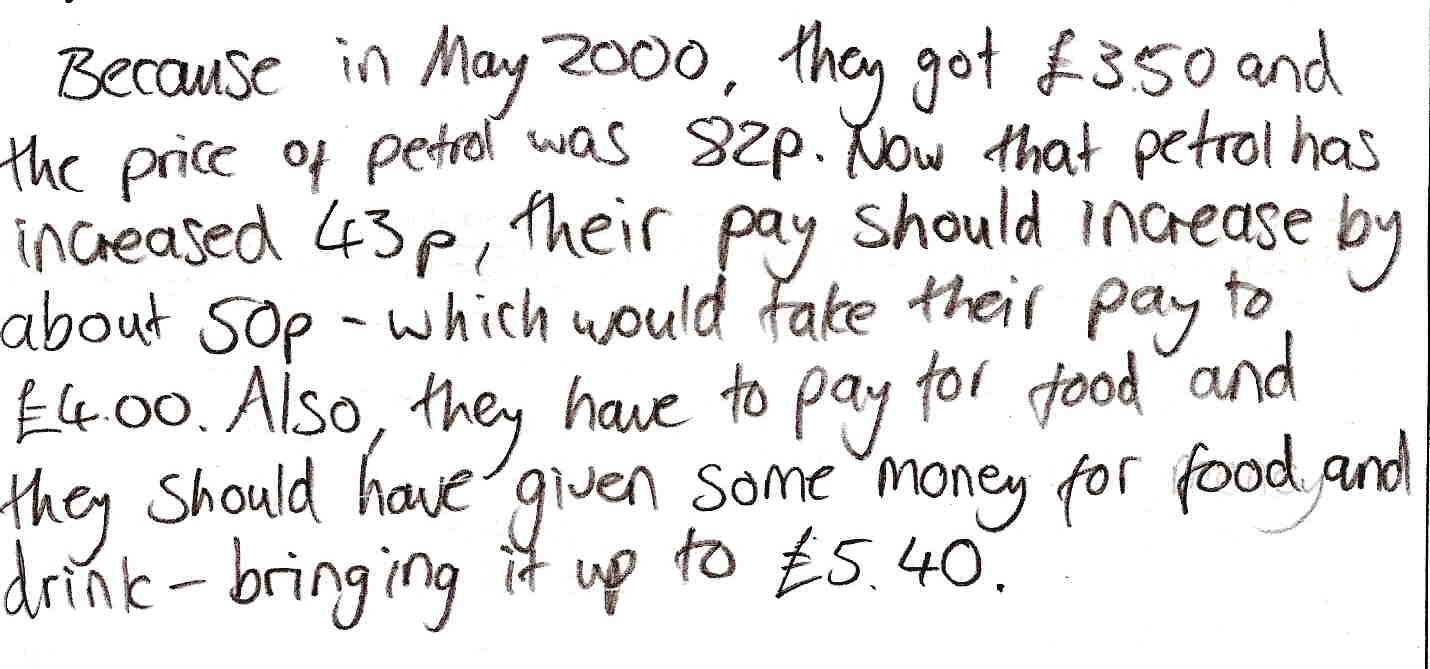 Because in May 2000, they got £3.50 and
the price of petrol was 82p. Now that petrol has
increased 43p, their pay should increase by
about 50p - which would take their pay to
£4.00. Also, they have to pay for food and
they should have given some money for food and
drink - bringing it up to £5.40.